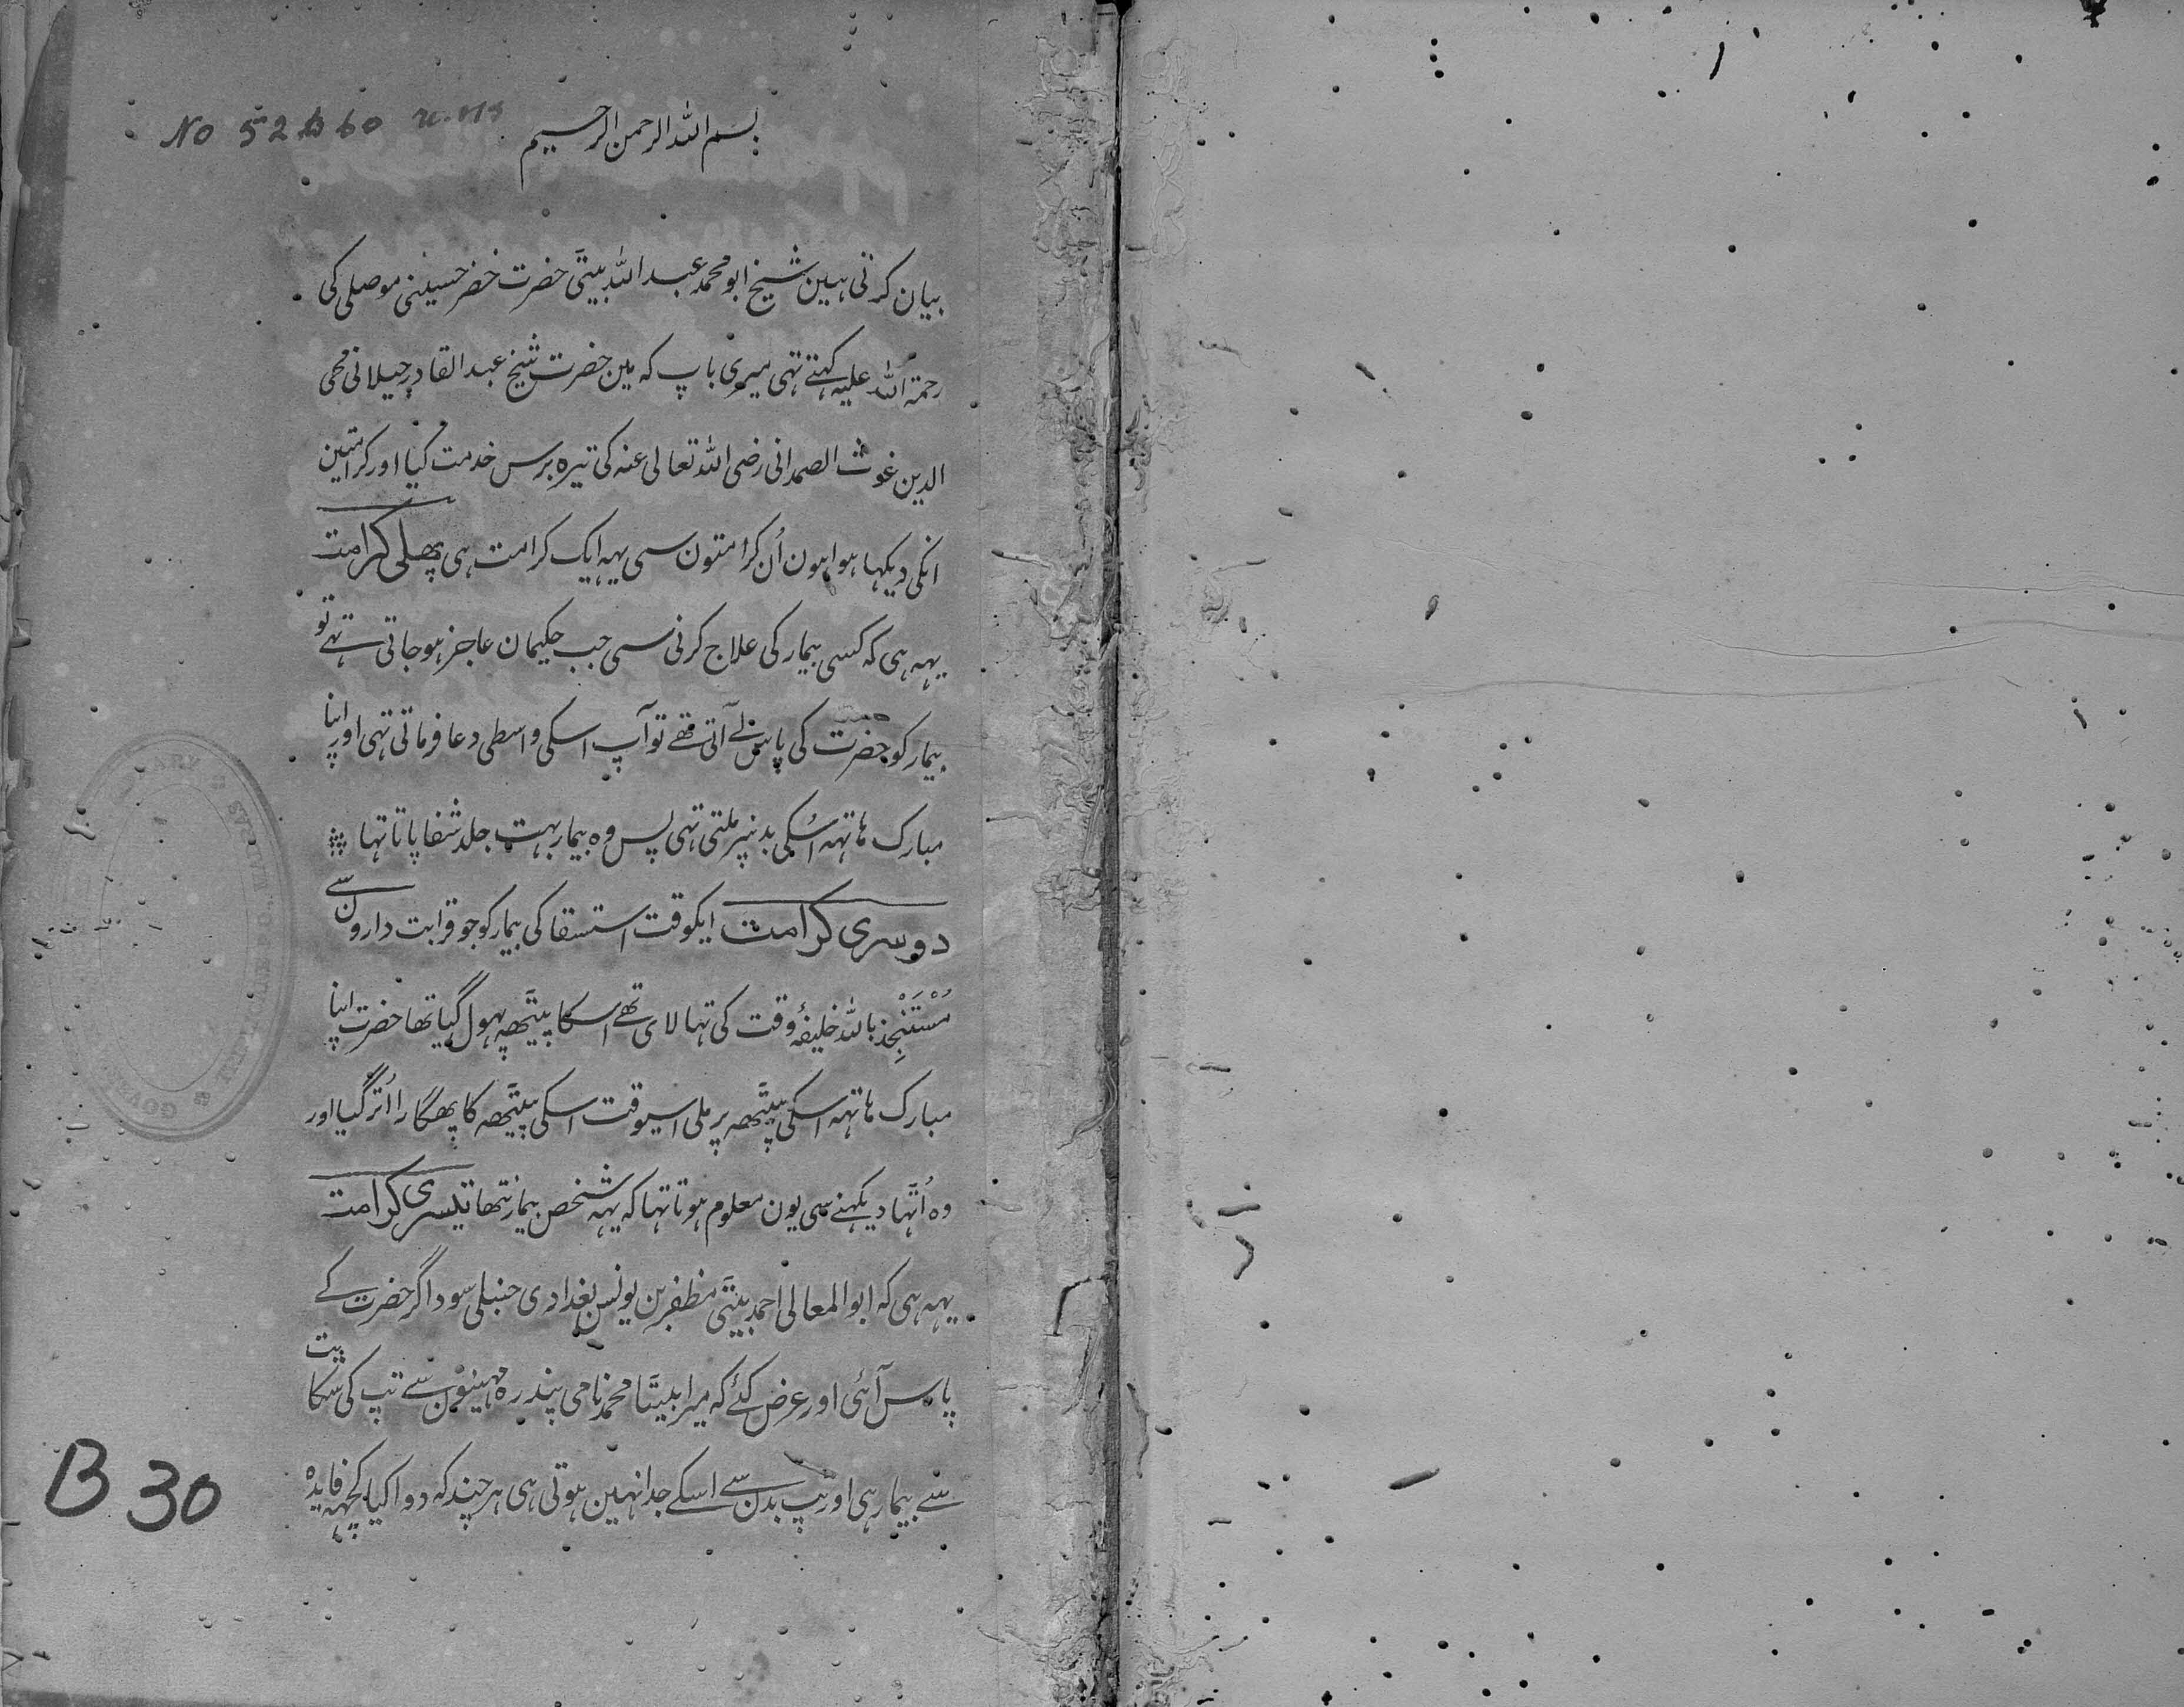 No 52 B 60
بسم الله الرحمن الرحيم
بیان کرتی ہین شیخ ابو محمد عبد اللہ بیٹی حضرت خضر حسینی موصلی کی
رحمۃ اللہ علیہ کہتے تہی میری باپ کہ مین حضرت شیخ عبد القادر جیلانی محی
الدین غوث الصمدانی رضی اللہ تعالی عنہ کی تیرہ برس خدمت کیا اور کرامتین
انکی دیکہا ہوا ہون اُن کرامتون سی یہہ ایک کرامت ہی پھلی کرامت
یہہ ہی کہ کسی بیمار کی علاج کرنی سی جب حکیمان عاجز ہو جاتی تہے تو
بیمار کو حضرت کی پاس لے آتی تھے تو آپ اسکی واسطی دعا فرماتی تہی اور اپنا
مبارک ہاتہہ اسُکی بدنپر ملتی تہی پس وہ بیمار بہت جلد شفا پاتا تہا
دوسری کرامت ایکوقت استسقا کی بیمار کو جو قرابت دارون سے
مُسْتَنْجِذ باللہ خلیفۂ وقت کی تہا لای تھے اسکا پیٹھہ پہول گیا تھا حضرت اپنا
مبارک ہاتہہ اسکی پیٹھہ پر ملی اسیوقت اسکی پیٹھہ کا پھگارا اُتر گیا اور
وہ اُٹہا دیکہنے سی یون معلوم ہوتا تہا کہ یہہ شخص بیمار نتھا تیسری کرامت
یہہ ہی کہ ابو المعالی احمد بیٹی مظفر بن یونس بغدادی حنبلی سوداگر حضرت کے
پاس آئی اور عرض کئے کہ میرا بیٹا محمد نامی پندرہ مہینون سے تپ کی شکایت
سے بیمار ہی اور تپ بدن سے اسکے جدا نہین ہوتی ہی ہر چند کہ دوا کیا کچہہ فایدہ
B 30